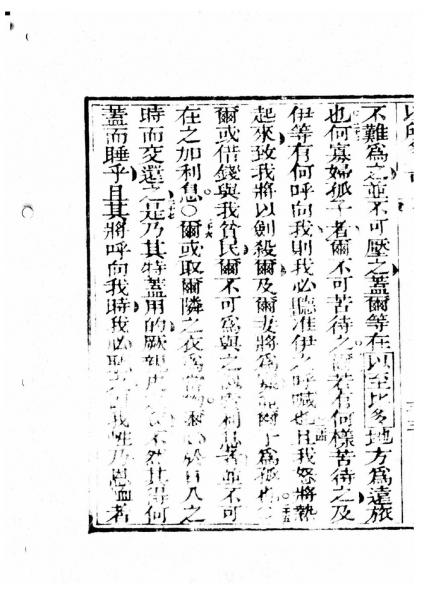 不難為之並不可壓之蓋爾等在以至比多地方為遠旅
也何寡婦孤子者爾不可苦待之爾若有何樣苦待之及
伊等有何呼向我則我必聽准伊之呼喊也且我怒將熱
起來致我將以劍殺爾及爾妻將為婦爾子為孤也
爾或借錢與我貧民爾不可為與之利息者並不可
在之加利息〇爾或取爾隣之衣為當於日入之
時而交還之是乃其特蓋用的厥皮不然其得何
蓋而睡乎且其將呼向我時我必聽之我性乃恩者